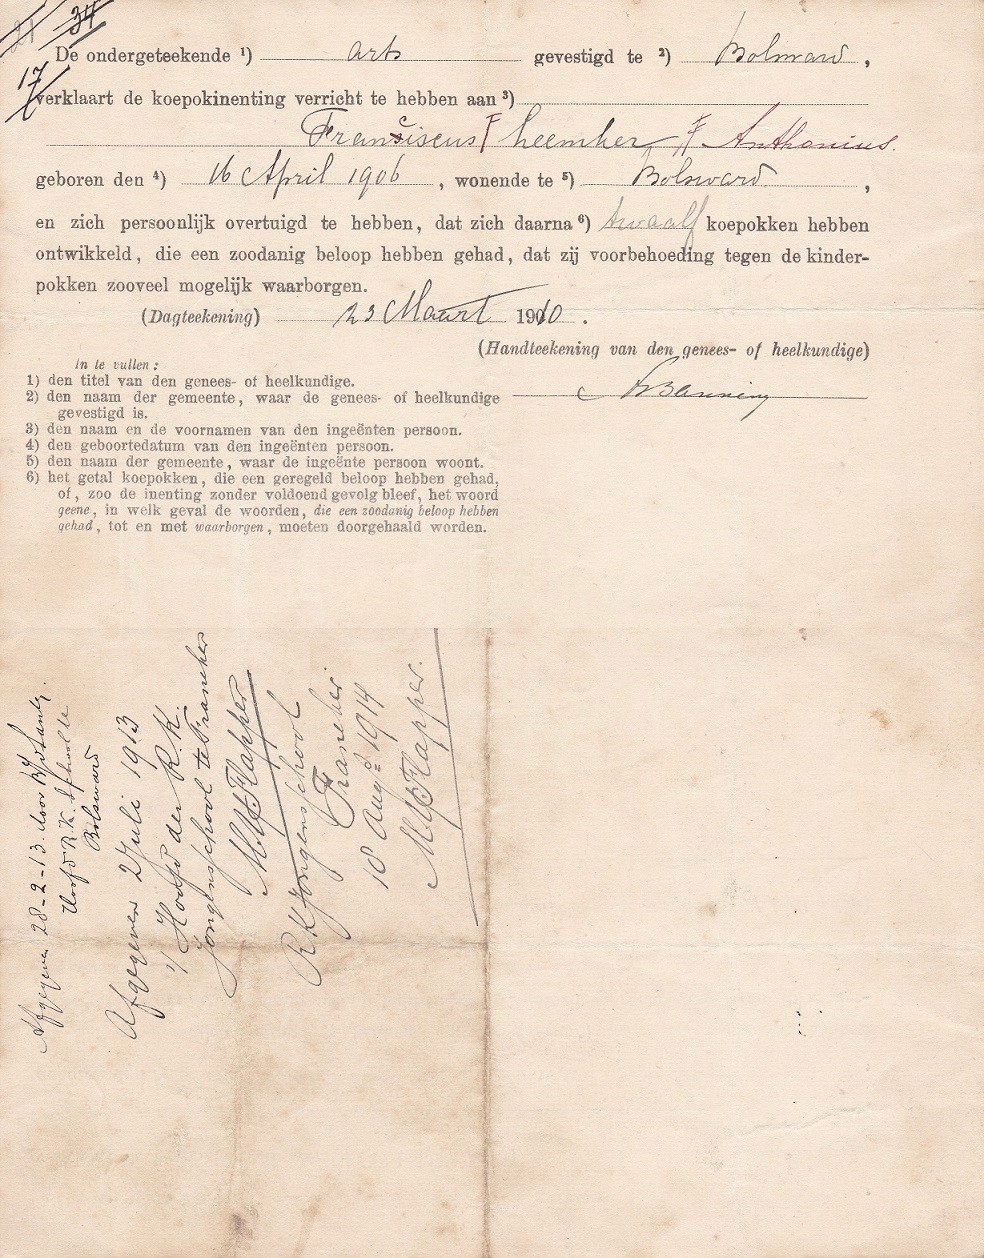 21 34
17
De ondergeteekende ¹) arts gevestigd te ²) Bolsward ,
verklaart de koepokinenting verricht te hebben aan ³)
Franciscus F F Anthonius.
geboren den ⁴) 16 April 1906 , wonende te ⁵) Bolsward ,
en zich persoonlijk overtuigd te hebben, dat zich daarna ⁶) twaalf koepokken hebben
ontwikkeld, die een zoodanig beloop hebben gehad, dat zij voorbehoeding tegen de kinder-
pokken zooveel mogelijk waarborgen.
(Dagteekening) 23 Maart 1910 .
(Handteekening van den genees- of heelkundige)
In te vullen:
1) den titel van den genees- of heelkundige.
2) den naam der gemeente, waar de genees- of heelkundige
gevestigd is.
3) den naam en de voornamen van den ingeënten persoon.
4) den geboortedatum van den ingeënten persoon.
5) den naam der gemeente, waar de ingeënte persoon woont.
6) het getal koepokken, die een geregeld beloop hebben gehad,
of, zoo de inenting zonder voldoend gevolg bleef, het woord
geene, in welk geval de woorden, die een zoodanig beloop hebben
gehad, tot en met waarborgen, moeten doorgehaald worden.
Afgegeven 28-2-13. door
Hoofd R.K. School te
Bolsward
Afgegeven 2 Juli 1913
Hoofd der R.K.
jongensschool te Franeker
Flapper
R K Jongensschool
Franeker
18 Augs 1914
Flapper.